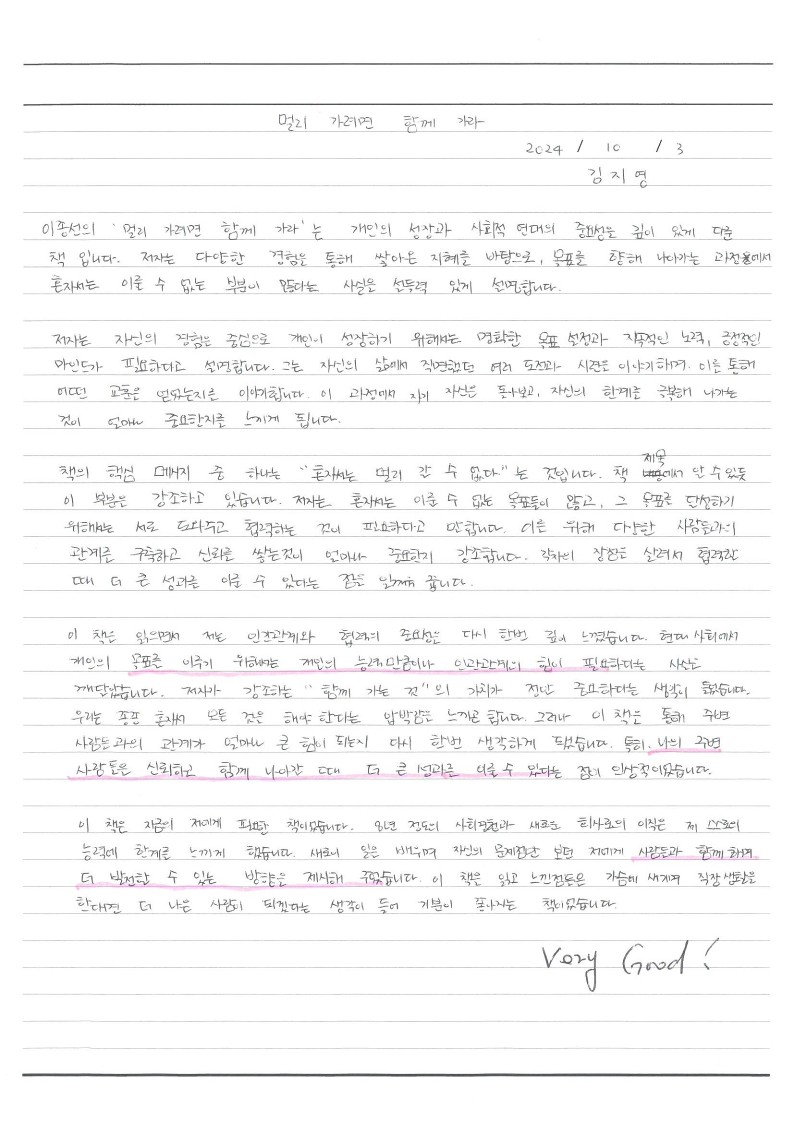 멀리 가려면 함께 가라
2024 / 10 / 3
김지영
이종선의 '멀리 가려면 함께 가라'는 개인의 성장과 사회적 연대의 중요성을 깊이 있게 다룬
책 입니다. 저자는 다양한 경험을 통해 쌓아온 지혜를 바탕으로, 목표를 향해 나아가는 과정에서
혼자서는 이룰 수 없는 부분이 많다는 사실을 설득력 있게 설명합니다.
저자는 자신의 경험을 중심으로 개인이 성장하기 위해서는 명확한 목표 설정과 지속적인 노력, 긍정적인
마인드가 필요하다고 설명합니다. 그는 자신의 삶에서 직면했던 여러 도전과 시련을 이야기하며, 이를 통해
어떤 교훈을 얻었는지를 이야기합니다. 이 과정에서 자기 자신을 돌아보고, 자신의 한계를 극복해 나가는
것이 얼마나 중요한지를 느끼게 됩니다.
책의 핵심 메시지 중 하나는 "혼자서는 멀리 갈 수 없다"는 것입니다. 책 제목에서 알 수 있듯
이 부분을 강조하고 있습니다. 저자는 혼자서는 이룰 수 없는 목표들이 많고, 그 목표를 달성하기
위해서는 서로 도와주고 협력하는 것이 필요하다고 말합니다. 이를 위해 다양한 사람들과의
관계를 구축하고 신뢰를 쌓는것이 얼마나 중요한지 강조합니다. 각자의 장점을 살려서 협력할
때 더 큰 성과를 이룰 수 있다는 점을 일깨워 줍니다.
이 책을 읽으면서 저는 인간관계와 협력의 중요성을 다시 한번 깊이 느꼈습니다. 현대 사회에서
개인의 목표를 이루기 위해서는 개인의 능력만큼이나 인간관계의 힘이 필요하다는 사실을
깨달았습니다. 저자가 강조하는 "함께 가는 것"의 가치가 정말 중요하다는 생각이 들었습니다.
우리는 종종 혼자서 모든 것을 해야 한다는 압박감을 느끼곤 합니다. 그러나 이 책을 통해 주변
사람들과의 관계가 얼마나 큰 힘이 되는지 다시 한번 생각하게 되었습니다. 특히, 나의 주변
사람들을 신뢰하고 함께 나아갈 때 더 큰 성과를 이룰 수 있다는 점이 인상적이었습니다.
이 책은 지금의 저에게 필요한 책이었습니다. 8년 정도의 사회경험과 새로운 회사로의 이직은 제 스스로의
능력에 한계를 느끼게 했습니다. 새로이 일을 배우며 자신의 문제점만 보던 저에게 사람들과 함께 하며
더 발전할 수 있는 방향을 제시해 주었습니다. 이 책을 읽고 느낀점들을 가슴에 새기며 직장생활을
한다면 더 나은 사람이 되겠다는 생각이 들어 기분이 좋아지는 책이었습니다.
Very Good!